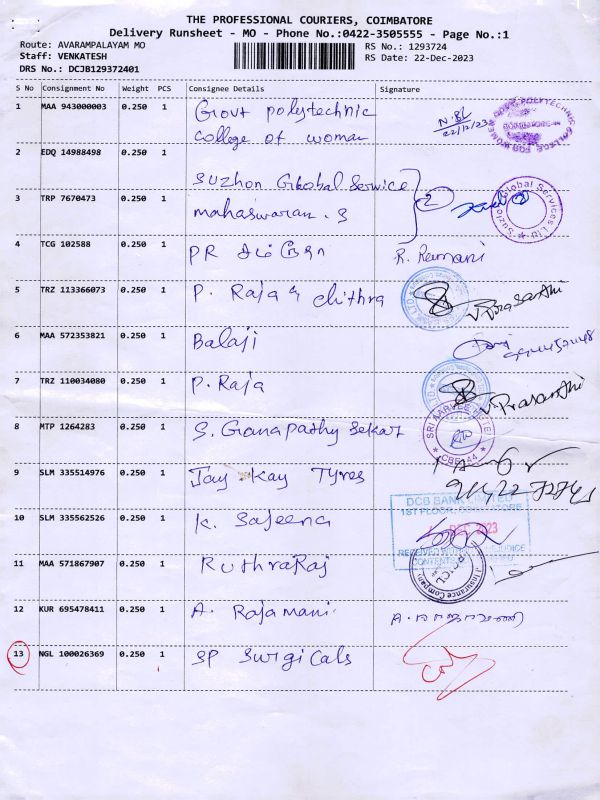 THE PROFESSIONAL COURIERS, COIMBATORE
Delivery Runsheet - MO - Phone No.:0422-3505555 - Page No.:1
Route: AVARAMPALAYAM MO
RS No.: 1293724
Staff: VENKATESH
RS Date: 22-Dec-2023
DRS No.: DCJB129372401
S No Consignment No Weight PCS Consignee Details Signature
1 MAA 943000003 0.250 1 Govt polytechnic
college of woman
22/12/23
2 EDQ 14988498 0.250 1 Suzhon Gkobal Service
3 TRP 7670473 0.250 1 mahaswaran . S
2
Suzlon Global Services Ltd
4 TCG 102588 0.250 1 PR
R. Ramani
5 TRZ 113366073 0.250 1 P. Raja & chithra
V. Prasanthi
6 MAA 572353821 0.250 1 Balaji
7 TRZ 110034080 0.250 1 P. Raja
V. Prasanthi
8 MTP 1264283 0.250 1 S. Ganapathy Sekar
9 SLM 335514976 0.250 1 Jay Kay Tyres
DCB BANK LIMITED
1ST FLOOR,
DEC 2023
10 SLM 335562526 0.250 1 K. Sajeena
11 MAA 571867907 0.250 1 RuthraRaj
12 KUR 695478411 0.250 1 A. Rajamani
13 NGL 100026369 0.250 1 SP Surgicals